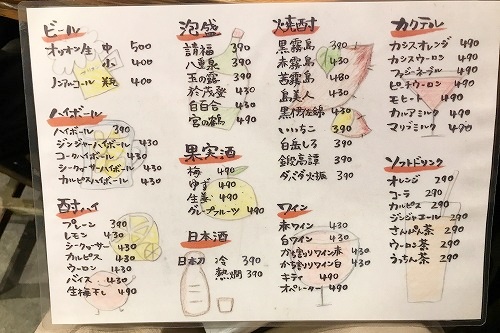 ビール
オリオン生 中 500
小 400
ノンアルコール 瓶 400
ハイボール
ハイボール 390
ジンジャーハイボール 430
コークハイボール 430
シークヮサーハイボール 430
カルピスハイボール 430
酎ハイ
プレーン 390
レモン 430
シークヮーサー 430
カルピス 430
ウーロン 430
バイス 430
生梅干し 490
泡盛
請福 390
八重泉 390
玉の露 390
於茂登 430
白百合 430
宮の鶴 490
果実酒
梅 490
ゆず 490
生姜 490
グレープフルーツ 490
日本酒
冷 390
熱燗 390
焼酎
黒霧島 390
赤霧島 430
茜霧島 480
島美人 430
黒伊佐錦 430
いいちこ 390
白岳しろ 390
鍛高譚 390
ダバダ火振 390
ワイン
赤ワイン 430
白ワイン 430
がち割りワイン赤 430
がち割りワイン白 430
キティ 490
オペレーター 490
カクテル
カシスオレンジ 490
カシスウーロン 490
ファジーネーブル 490
ピーチウーロン 490
モヒート 490
カルアミルク 490
マリブミルク 490
ソフトドリンク
オレンジ 290
コーラ 290
カルピス 290
ジンジャエール 290
さんぴん茶 290
ウーロン茶 290
うっちん茶 290